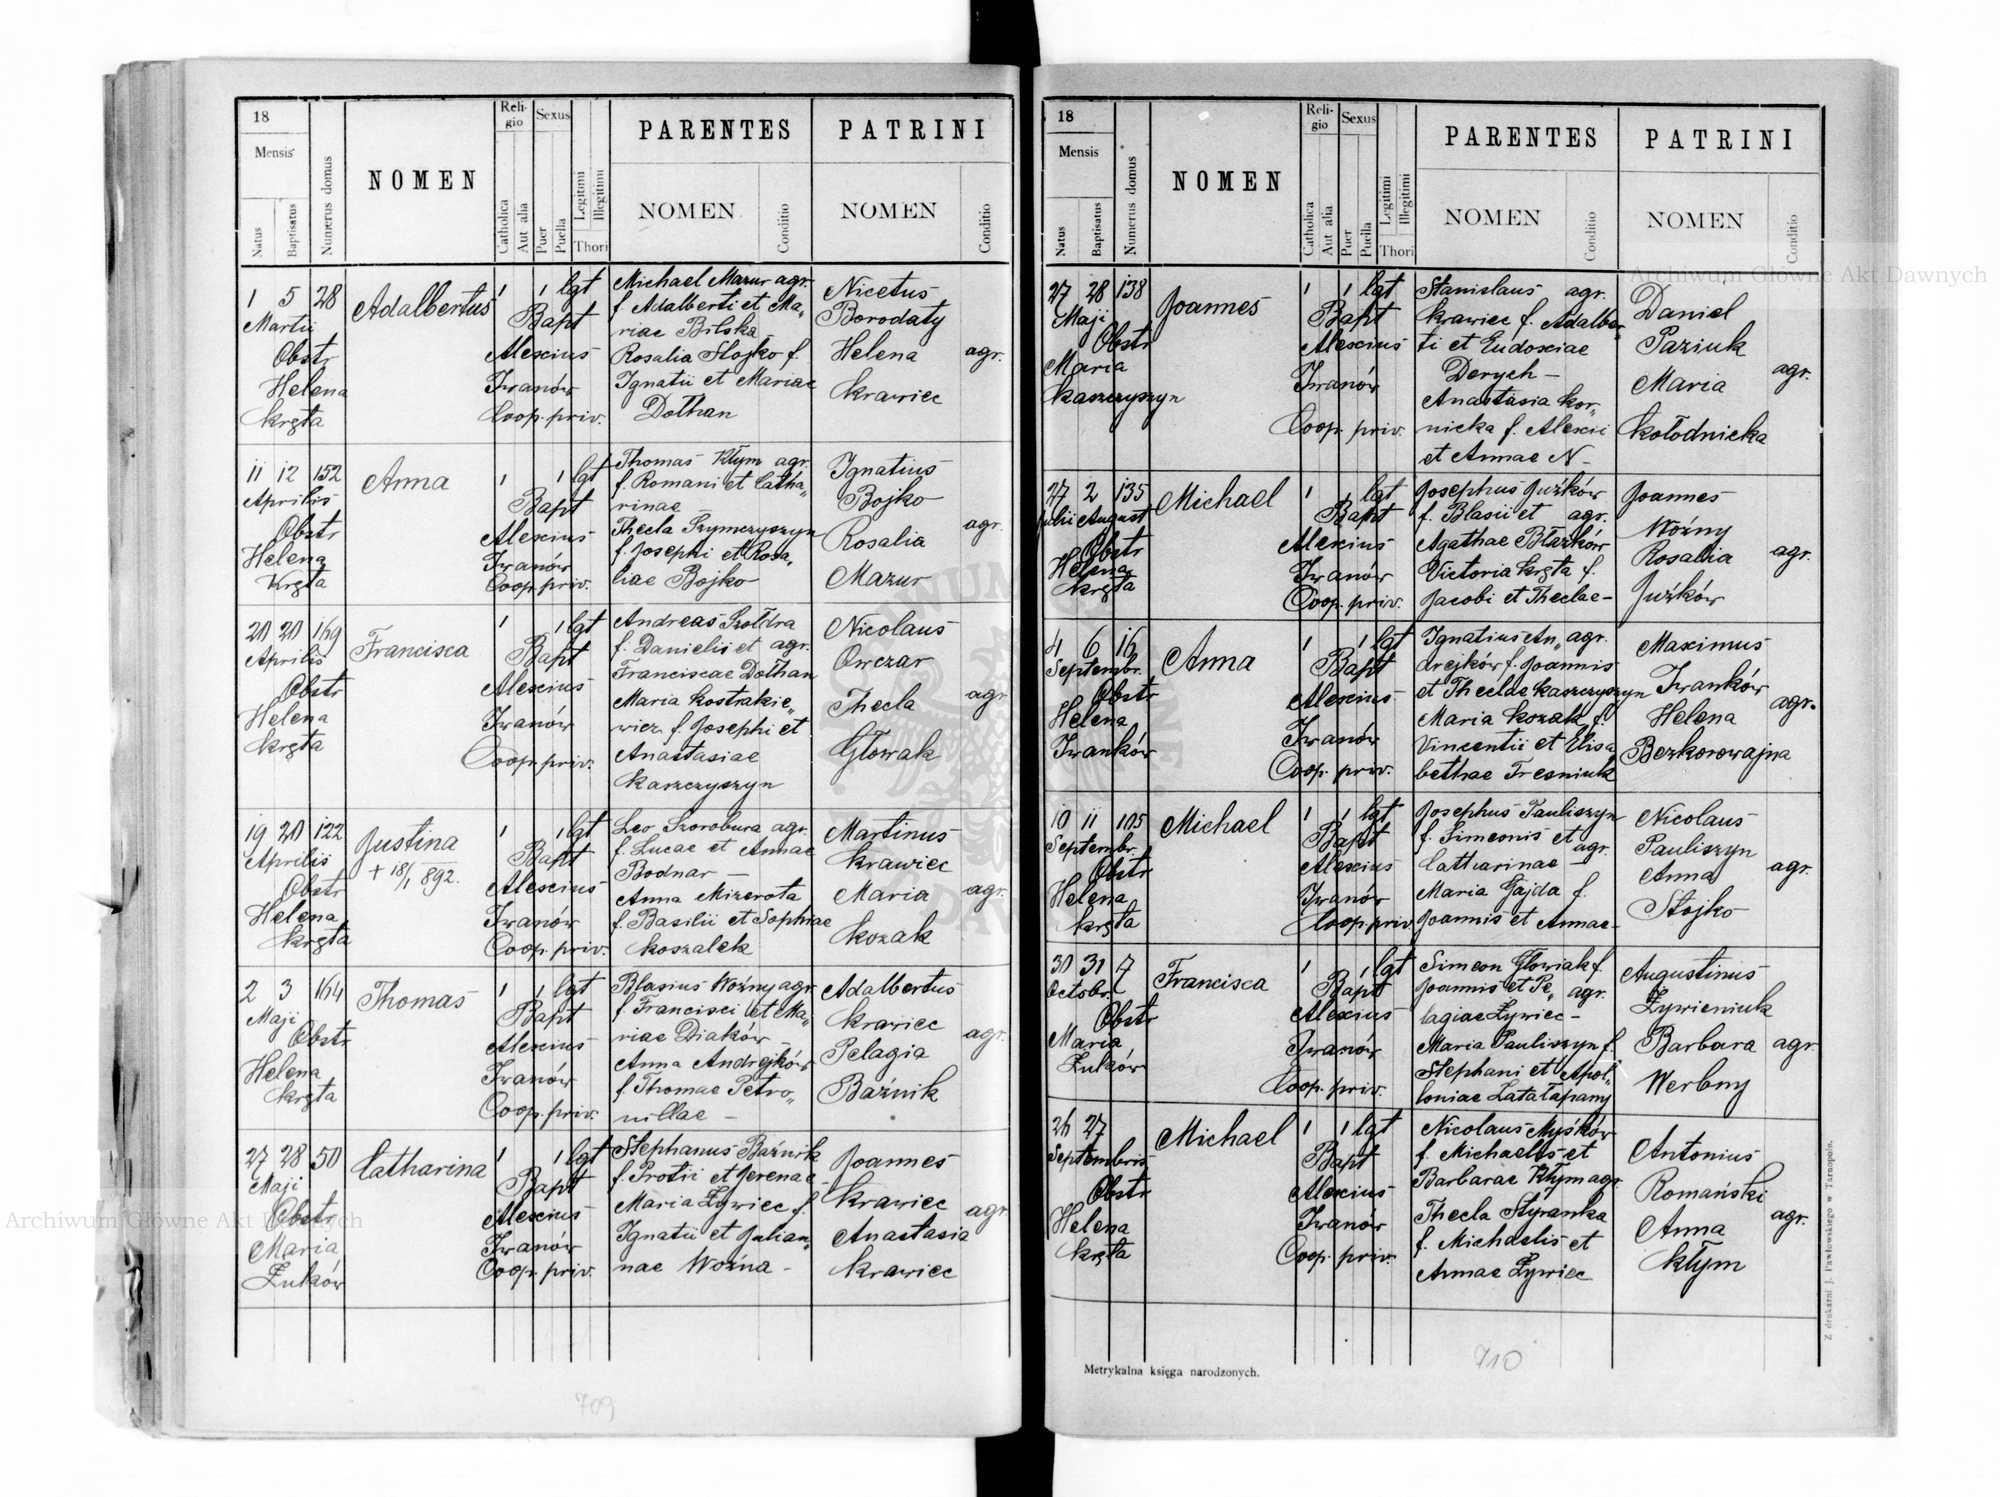 18
Mensis
Natus
Baptisatus
Numerus domus
NOMEN
Religio
Catholica
Aut alia
Sexus
Puer
Puella
Legitimi
Illegitimi
Thori
PARENTES
NOMEN
Conditio
PATRINI
NOMEN
Conditio
1 5 28
Martii
Obstr
Helena
Kręta
Adalbertus
1 1 lgt
Bapt
Alexius
Iwanów
Coop. priv.
Michael Mazur agr.
f. Adalberti et Ma„
riae Bilska
Rosalia Stojko f.
Ignatii et Mariae
Dołhan
Nicetus
Borodaty
Helena agr.
Krawiec
11 12 152
Aprilis
Obstr
Helena
Kręta
Anna
1 1 lgt
Bapt
Alexius
Iwanów
Coop. priv.
Thomas Kłym agr.
f. Romani et Catha„
rinae
Thecla Szymczyszyn
f. Josephi et Rosa„
liae Bojko
Ignatius
Bojko
Rosalia agr.
Mazur
20 20 169
Aprilis
Obstr
Helena
Kręta
Francisca
1 1 lgt
Bapt
Alexius
Iwanów
Coop. priv.
Andreas Szołdra
f. Danielis et agr.
Franciscae Dołhan
Maria Kostrakie„
wicz f. Josephi et
Anastasiae
Kaszczyszyn
Nicolaus
Owczar
Thecla agr
Głowak
19 20 122
Aprilis
Obstr
Helena
Kręta
Justina
+ 18/1 892.
1 1 lgt
Bapt
Alexius
Iwanów
Coop. priv.
Leo Szorobura agr.
f. Lucae et Annae
Bodnar —
Anna Mizerota
f. Basilii et Sophiae
Koszalek
Martinus
Krawiec
Maria agr.
Kozak
2 3 164
Maji
Obstr
Helena
Kręta
Thomas
1 1 lgt
Bapt
Alexius
Iwanów
Coop. priv.
Blasius Woźny agr
f. Francisci et Ma„
riae Diaków —
Anna Andrejków
f. Thomae Petro„
nillae —
Adalbertus
Krawiec
Pelagia agr.
Baźnik
27 28 50
Maji
Obstr
Maria
Żuków
Catharina
1 1 lgt
Bapt
Alexius
Iwanów
Coop. priv.
Stephanus Baźnik
f. Protii et Jerenae
Maria Żywiec f.
Ignatii et Julian„
nae Woźna —
Joannes
Krawiec
Anastasia agr
Krawiec
709
18
Mensis
Natus
Baptisatus
Numerus domus
NOMEN
Religio
Catholica
Aut alia
Sexus
Puer
Puella
Legitimi
Illegitimi
Thori
PARENTES
NOMEN
Conditio
PATRINI
NOMEN
Conditio
27 28 138
Maji
Obstr
Maria
Kaszczyszyn
Joannes
1 1 lgt
Bapt
Alexius
Iwanów
Coop. priv.
Stanislaus agr.
Krawiec f. Adalber„
ti et Eudoxiae
Derych —
Anastasia Kor„
nicka f. Alexii
et Annae N—
Daniel
Paziuk
Maria agr.
Kołodnicka
27 2 135
Julii August
Obstr
Helena
Kręta
Michael
1 1 lgt
Bapt
Alexius
Iwanów
Coop. priv.
Josephus Juźków
f. Blasii et agr.
Agathae Błażków
Victoria Kręta f.
Jacobi et Theclae—
Joannes
Woźny
Rosalia agr.
Juźków
4 6 16
Septembr.
Obstr
Helena
Iwanków
Anna
1 1 lgt
Bapt
Alexius
Iwanów
Coop. priv.
Ignatius An„ agr.
drejków f. Joannis
et Theclae Kaszczyszyn
Maria Kozak f.
Vincentii et Elisa
bethae Tresniuk
Maximus
Iwanków
Helena agr.
Bezkorowajna
10 11 105
Septembr.
Obstr
Helena
Kręta
Michael
1 1 lgt
Bapt
Alexius
Iwanów
Coop. priv.
Josephus Pauliszyn
f. Simeonis et agr.
Catharinae —
Maria Gajda f.
Joannis et Annae—
Nicolaus
Pauliszyn
Anna agr.
Stojko
30 31 7
Octobr.
Obstr
Maria
Żuków
Francisca
1 1 lgt
Bapt
Alexius
Iwanów
Coop. priv.
Simeon Głowiak f.
Joannis et Pe„ agr.
lagiae Żywiec —
Maria Pauliszyn f.
Stephani et Apol„
loniae Latałapany
Augustinus
Żywieniuk
Barbara agr
Werbny
26 27
Septembris
Obstr
Helena
Kręta
Michael
1 1 lgt
Bapt
Alexius
Iwanów
Coop. priv.
Nicolaus Myśków
f. Michaelis et
Barbarae Kłym agr.
Thecla Styranka
f. Michaelis et
Annae Żywiec
Antonius
Romański
Anna agr.
Kłym
Metrykalna księga narodzonych.
710
Z drukarni J. Pawłowskiego w Tarnopolu.
Archiwum Główne Akt Dawnych
Archiwum Główne Akt Dawnych